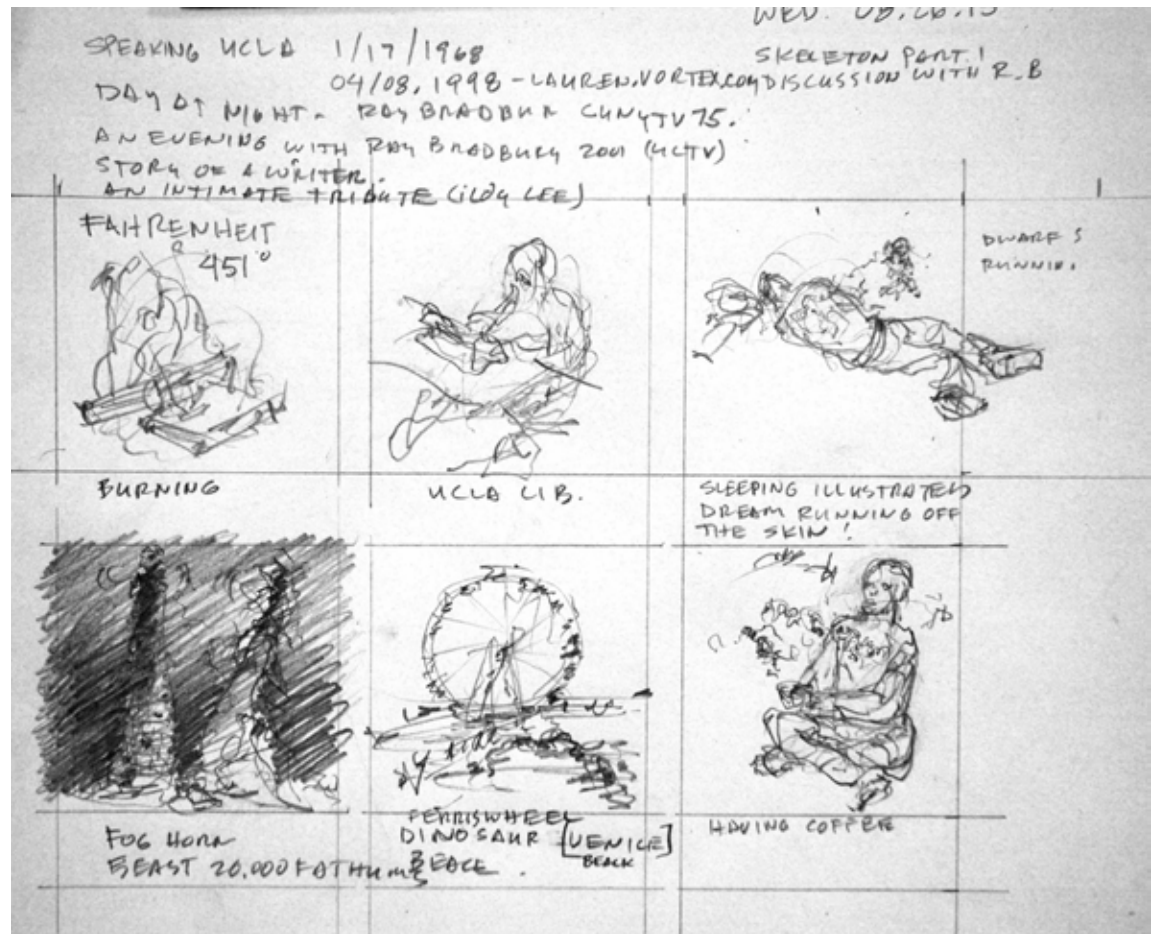 WED. 08.26.15
SPEAKING UCLA 1/17/1968
SKELETON PART.1
04/08.1998 - LAUREN.VORTEX.COM DISCUSSION WITH R.B
DAY AT NIGHT. RAY BRADBUR CUNYTV75.
AN EVENING WITH RAY BRADBURY 2001 (UCTV)
STORY OF A WRITER.
AN INTIMATE TRIBUTE
FAHRENHEIT
451°
DWARFS
RUNNIN.
BURNING
UCLA LIB.
SLEEPING ILLUSTRATED
DREAM RUNNING OFF
THE SKIN!
FOG HORN
BEAST 20.000 FATHUMS
FERRISWHEEL
DINOSAUR [VENICE]
BEACH
HAVING COFFEE